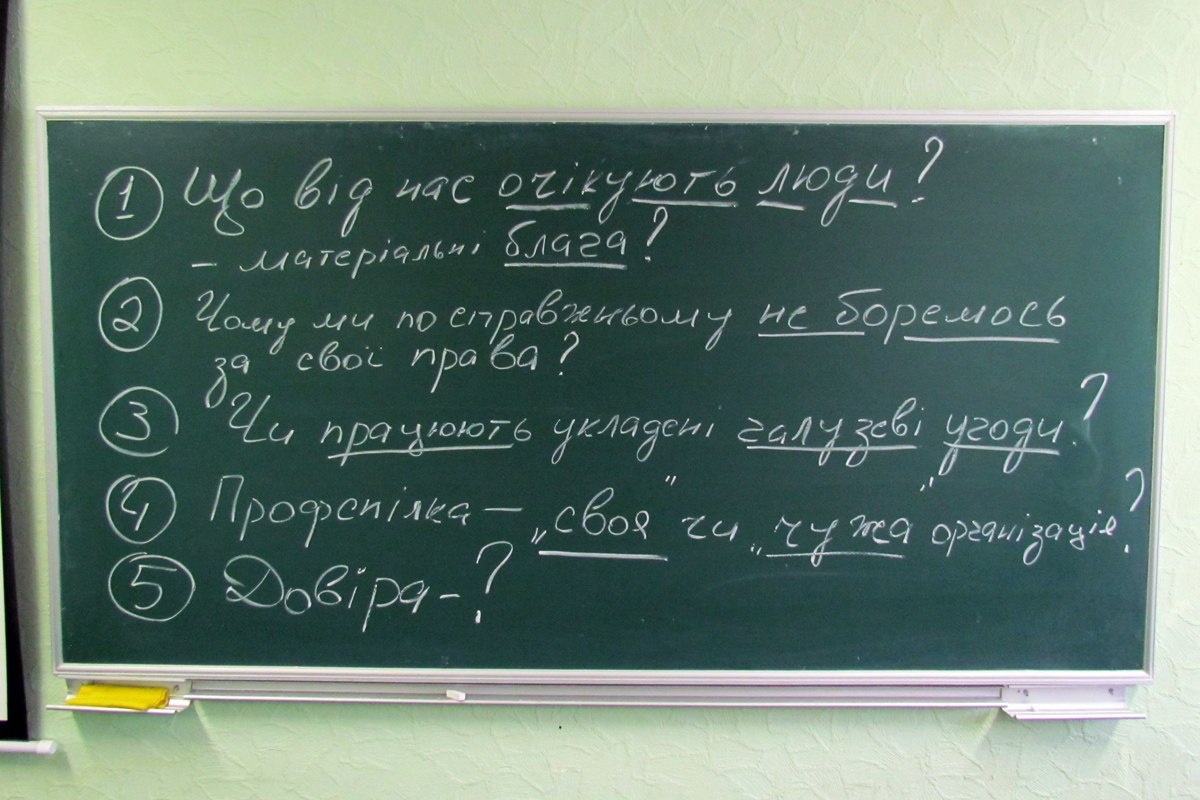 1 Що від нас очікують люди?
- матеріальні блага?
2 Чому ми по справжньому не боремось
за свої права?
3 Чи працюють укладені галузеві угоди?
4 Профспілка – „своя” чи „чужа” організація?
5 Довіра - ?